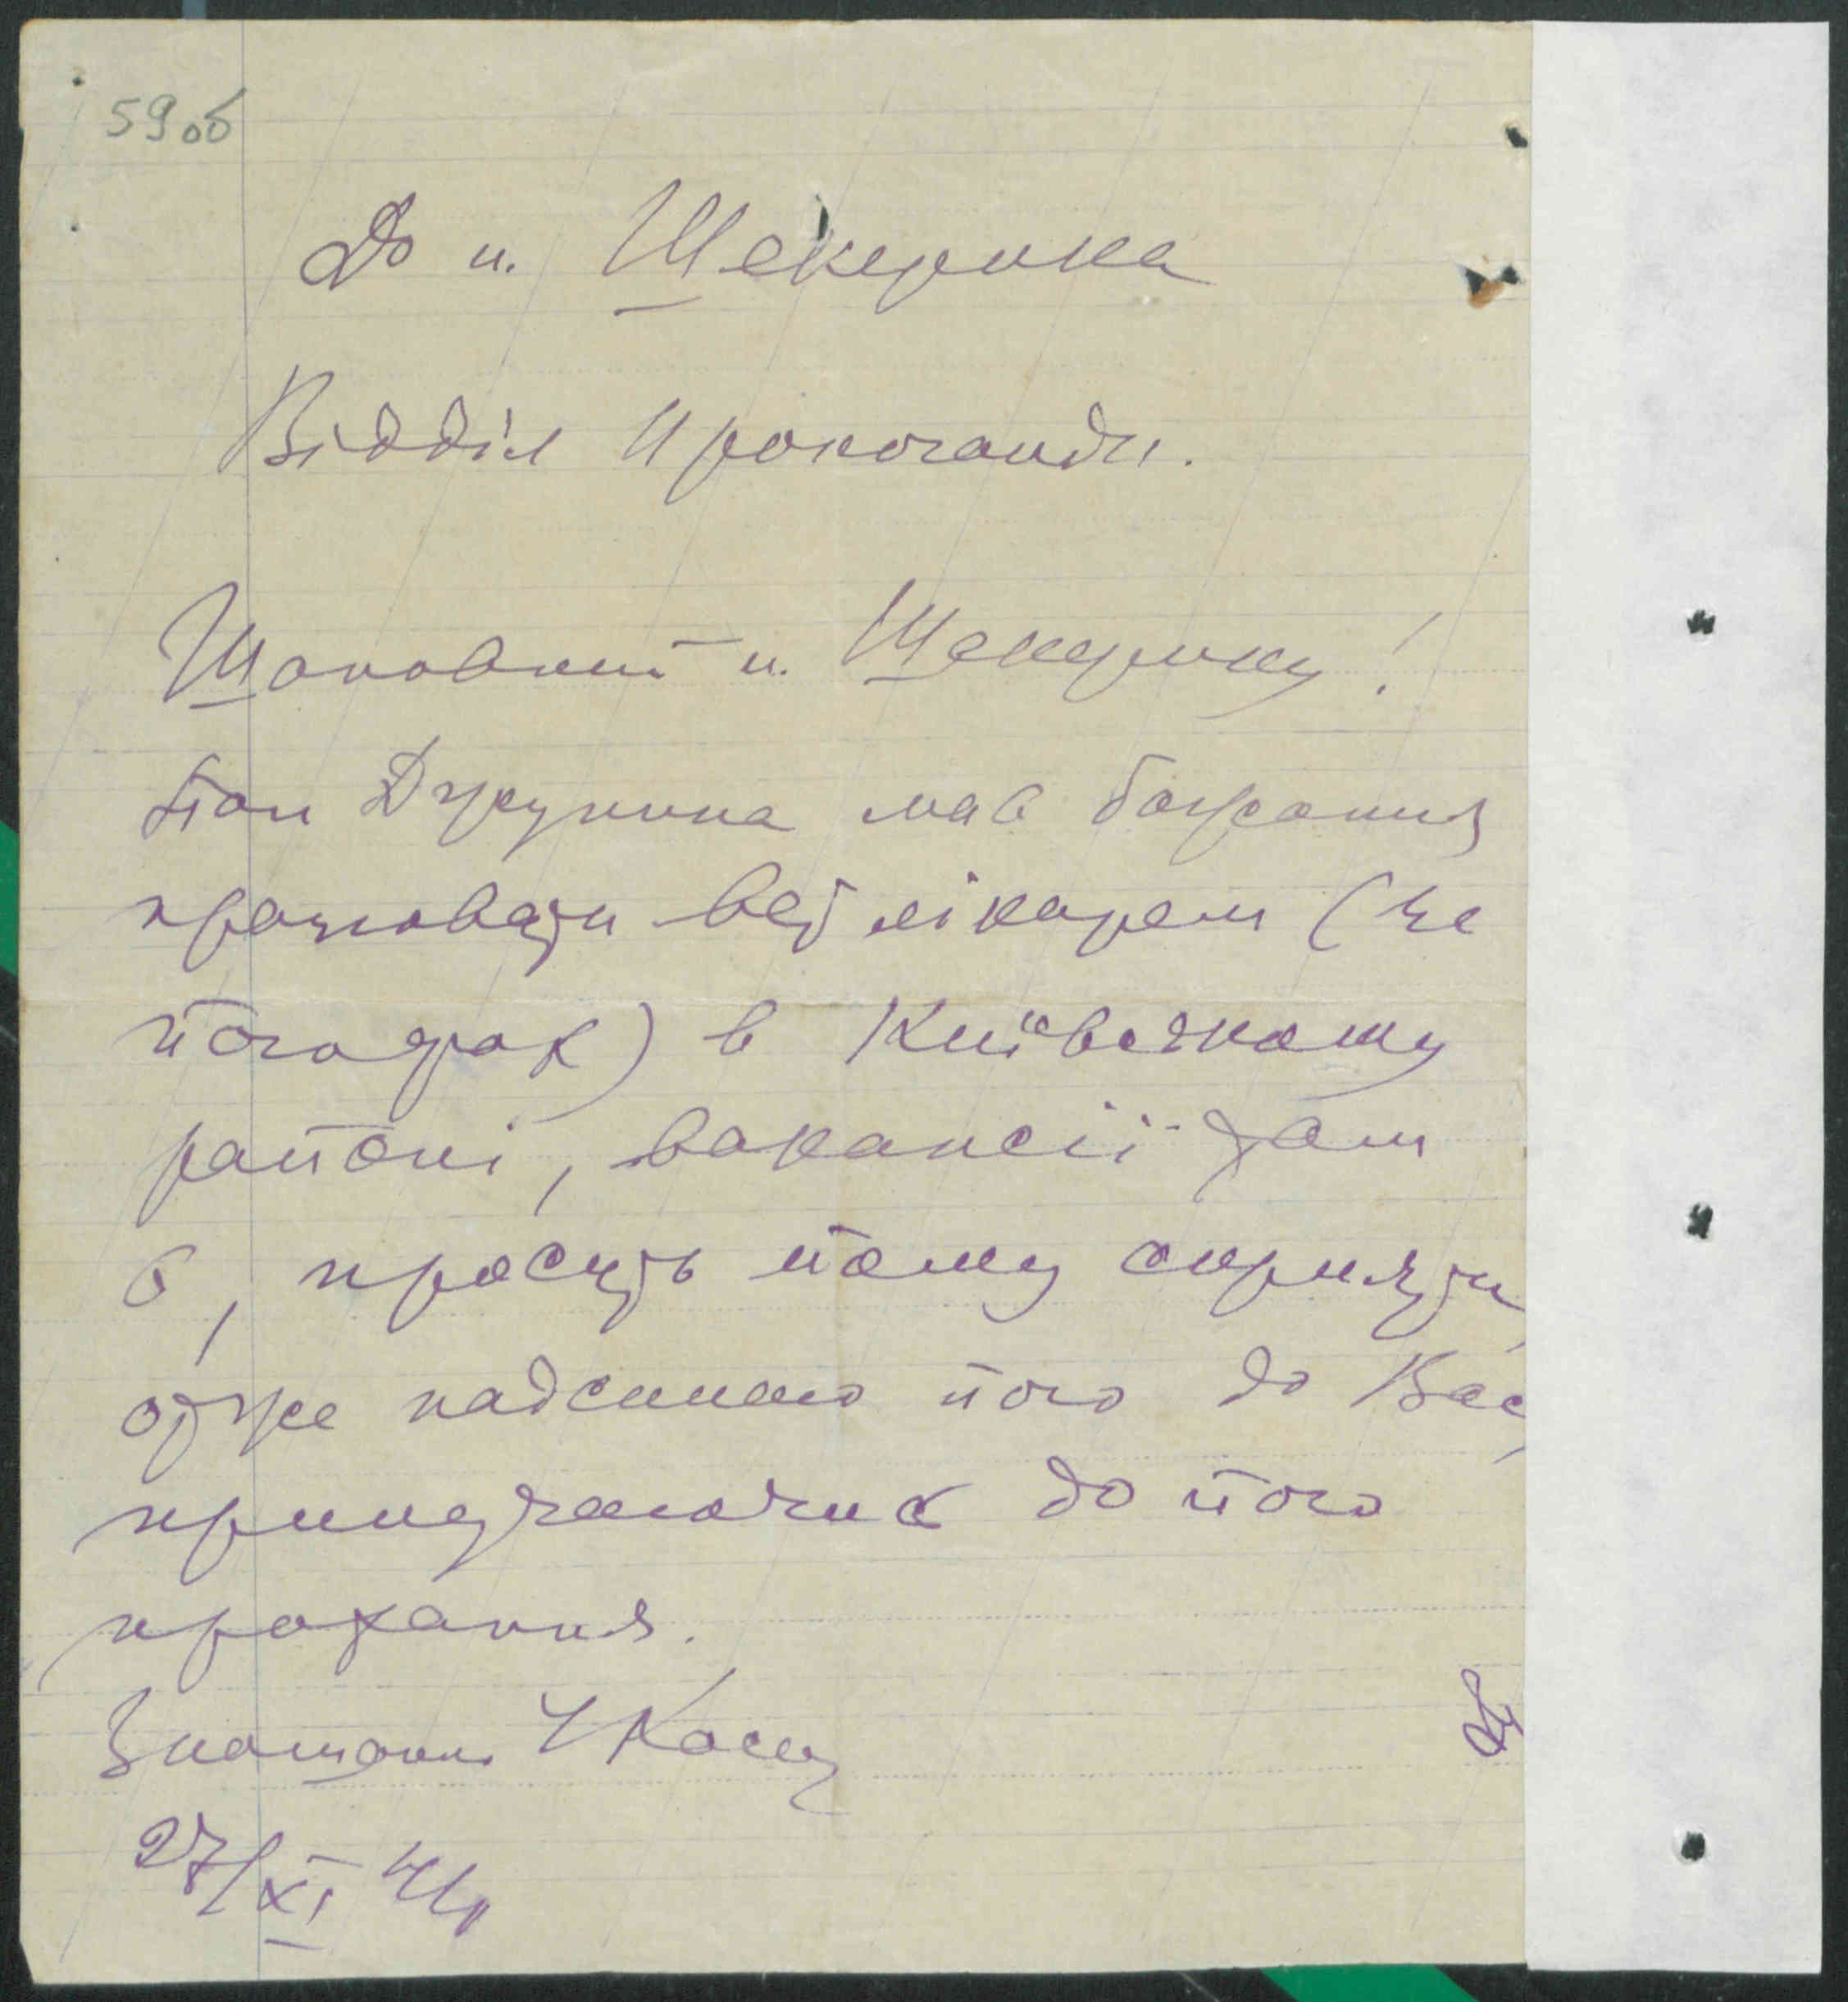 59об
До п. Шекерика
Відділ Пропоганди.
Шановний п. Шекерику!
Пан Дзюзюпа має бажання
працювати вет лікарем (це
його фах) в Київському
районі, вакансії там
є, просить йому сприяти,
отже надсилаю його до Вас,
прилучаючись до його
прохання.
Знатоки
27/XI 41р